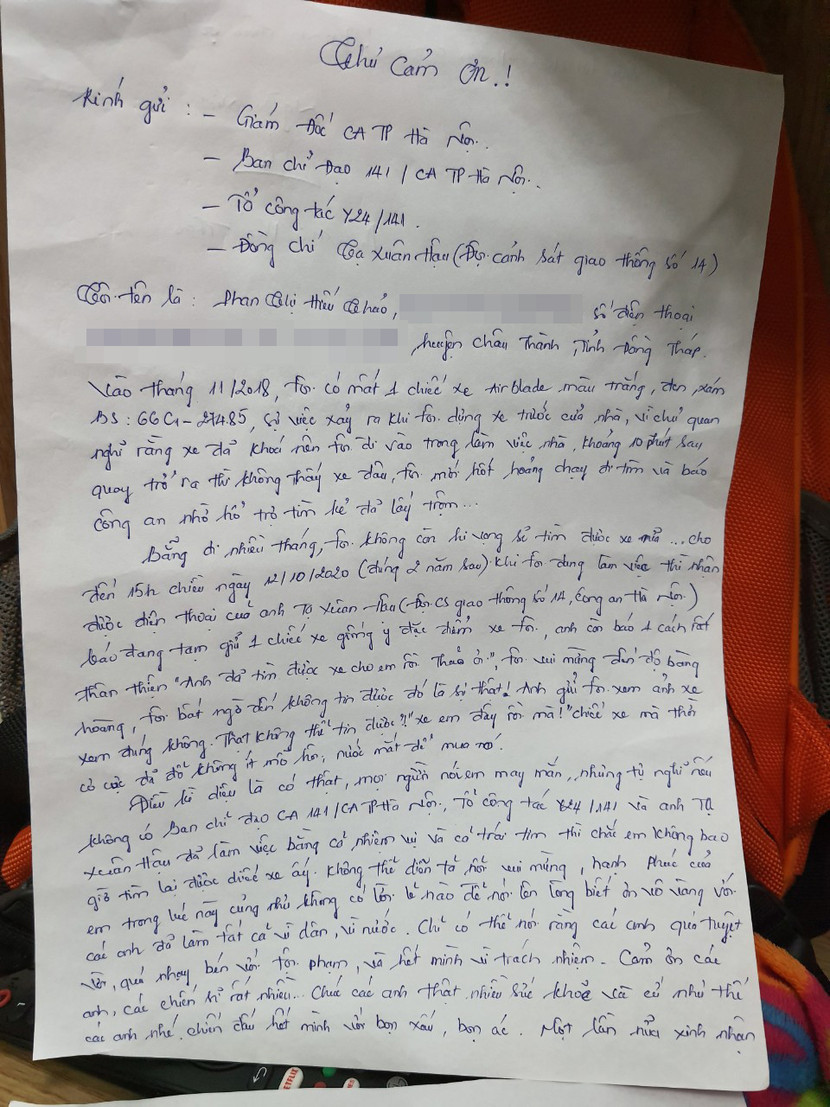 Thư Cảm Ơn.!
Kính gửi : - Giám Đốc CA TP Hà Nội.
- Ban chỉ Đạo 141 / CA TP Hà Nội.
- Tổ công tác Y24/141.
- Đồng chí Tạ Xuân Hậu (Đội cảnh sát giao thông số 14)
Tôi tên là : Phan Thị Hiếu Thảo, số điện thoại
, huyện Châu Thành, Tỉnh Đồng Tháp.
Vào tháng 11/2018, tôi có mất 1 chiếc xe Airblade màu trắng, đen, xám
BS : 66C1 - 274.85, sự việc xảy ra khi tôi dừng xe trước cửa nhà, vì chủ quan
nghĩ rằng xe đã khoá nên tôi đi vào trong làm việc nhà, khoảng 10 phút sau
quay trở ra thì không thấy xe đâu, tôi mới hốt hoảng chạy đi tìm và báo
công an nhờ hổ trợ tìm kẻ đã lấy trộm...
Bẵng đi nhiều tháng, tôi không còn hi vọng sẽ tìm được xe nữa ... cho
đến 15h chiều ngày 12/10/2020 (đúng 2 năm sau) khi tôi đang làm việc thì nhận
được điện thoại của anh Tạ Xuân Hậu (Đội CS giao thông số 14, Công an Hà Nội)
báo đang tạm giữ 1 chiếc xe giống y đặc điểm xe tôi, anh còn báo 1 cách rất
thân thiện "Anh đã tìm được xe cho em rồi Thảo ơi", tôi vui mừng đến độ bàng
hoàng, tôi bất ngờ đến không tin được đó là sự thật! Anh gửi tôi xem ảnh xe
xem đúng không. Thật không thể tin được?! "xe em đây rồi mà!" chiếc xe mà thời
cơ cực đã đổ không ít mồ hôi, nước mắt để mua nó.
Điều kì diệu là có thật, mọi người nói em may mắn, nhưng tự nghĩ nếu
không có Ban chỉ đạo CA 141/CA TP Hà Nội, Tổ công tác Y24/141 và anh Tạ
Xuân Hậu đã làm việc bằng cả nhiệm vụ và cả trái tim thì chắc em không bao
giờ tìm lại được chiếc xe ấy. Không thể diễn tả nổi vui mừng, hạnh phúc của
em trong lúc này cũng như không có lời lẽ nào để nói lên lòng biết ơn vô vàng với
các anh đã làm tất cả vì dân, vì nước. Chỉ có thể nói rằng các anh quá tuyệt
vời, quá nhạy bén với tội phạm, và hết mình vì trách nhiệm. Cảm ơn các
anh, các chiến sĩ rất nhiều... Chúc các anh thật nhiều sức khoẻ và cứ như thế
các anh nhé, chiến đấu hết mình với bọn xấu, bọn ác. Một lần nữa xinh nhận
NETFLIX